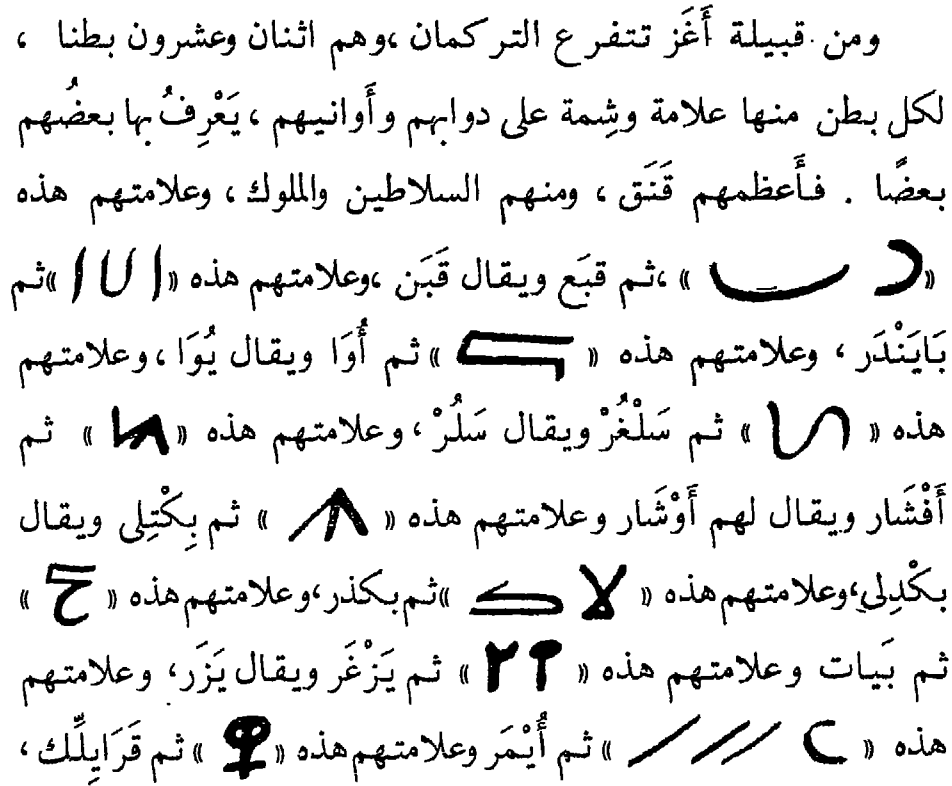 ومن قبيلة أَغَز تتفرع التركمان ،وهم اثنان وعشرون بطنا ،
لكل بطن منها علامة وشِمة على دوابهم وأَوانيهم ، يَعْرِفُ بها بعضُهم
بعضًا . فأَعظمهم قَنَق ، ومنهم السلاطين والملوك ، وعلامتهم هذه
« » ،ثم قبَع ويقال قَبَن ،وعلامتهم هذه « »ثم
بَايَنْدَر ، وعلامتهم هذه « » ثم أُوَا ويقال يُوَا ،وعلامتهم
هذه « » ثم سَلْغُرْ ويقال سَلُرْ ، وعلامتهم هذه « » ثم
أَفْشَار ويقال لهم أَوْشَار وعلامتهم هذه « » ثم بِكْتِلِى ويقال
بكْدِلى،وعلامتهم هذه « »ثم بكذر،وعلامتهم هذه « »
ثم بَيات وعلامتهم هذه « » ثم يَزْغَر ويقال يَزَر، وعلامتهم
هذه « » ثم أُيْمَر وعلامتهم هذه « » ثم قَرَايِلِّك ،